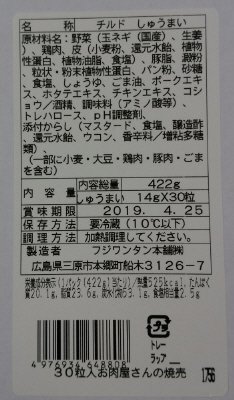 名 称 チルド しゅうまい
原材料名：野菜（玉ネギ（国産）、生姜
）、鶏肉、皮（小麦粉、還元水飴、植物
性蛋白、植物油脂、食塩）、豚脂、澱粉
、粒状・粉末植物性蛋白、パン粉、砂糖
、食塩、しょうゆ、ごま油、ポークエキ
ス、ホタテエキス、チキンエキス、コシ
ョウ／酒精、調味料（アミノ酸等）、
トレハロース、pH調整剤
添付からし（マスタード、食塩、醸造酢
、還元水飴、ウコン、香辛料／増粘多糖
類）、
（一部に小麦・大豆・鶏肉・豚肉・ごま
を含む）
内 容 量 内容総量 422g
しゅうまい 14gX30粒
賞味期限 2019. 4.25
保存方法 要冷蔵（10℃以下）
調理方法 加熱調理してください。
製造者 フジワンタン本舗㈱
広島県三原市本郷町船木3126-7
栄養成分表示（1パック(422g)当たり）／熱量525kcal、たんぱく
質20.1g、脂質23.6g、炭水化物53.1g、食塩相当量2.5g
トレー
ラップ
4976934648808
30粒入お肉屋さんの焼売 1756